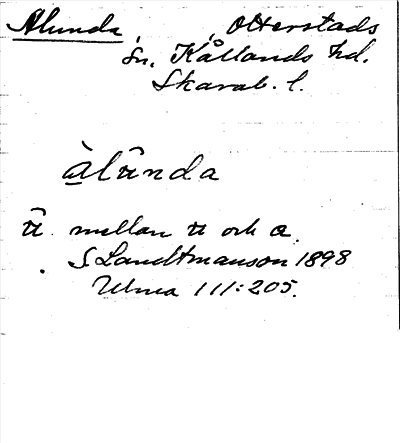 Alunda, Otterstads
sn. Kållands hd.
Skarab. l.
àlûnda
û mellan u och a.
S Landtmanson 1898
Ulma 111:205.